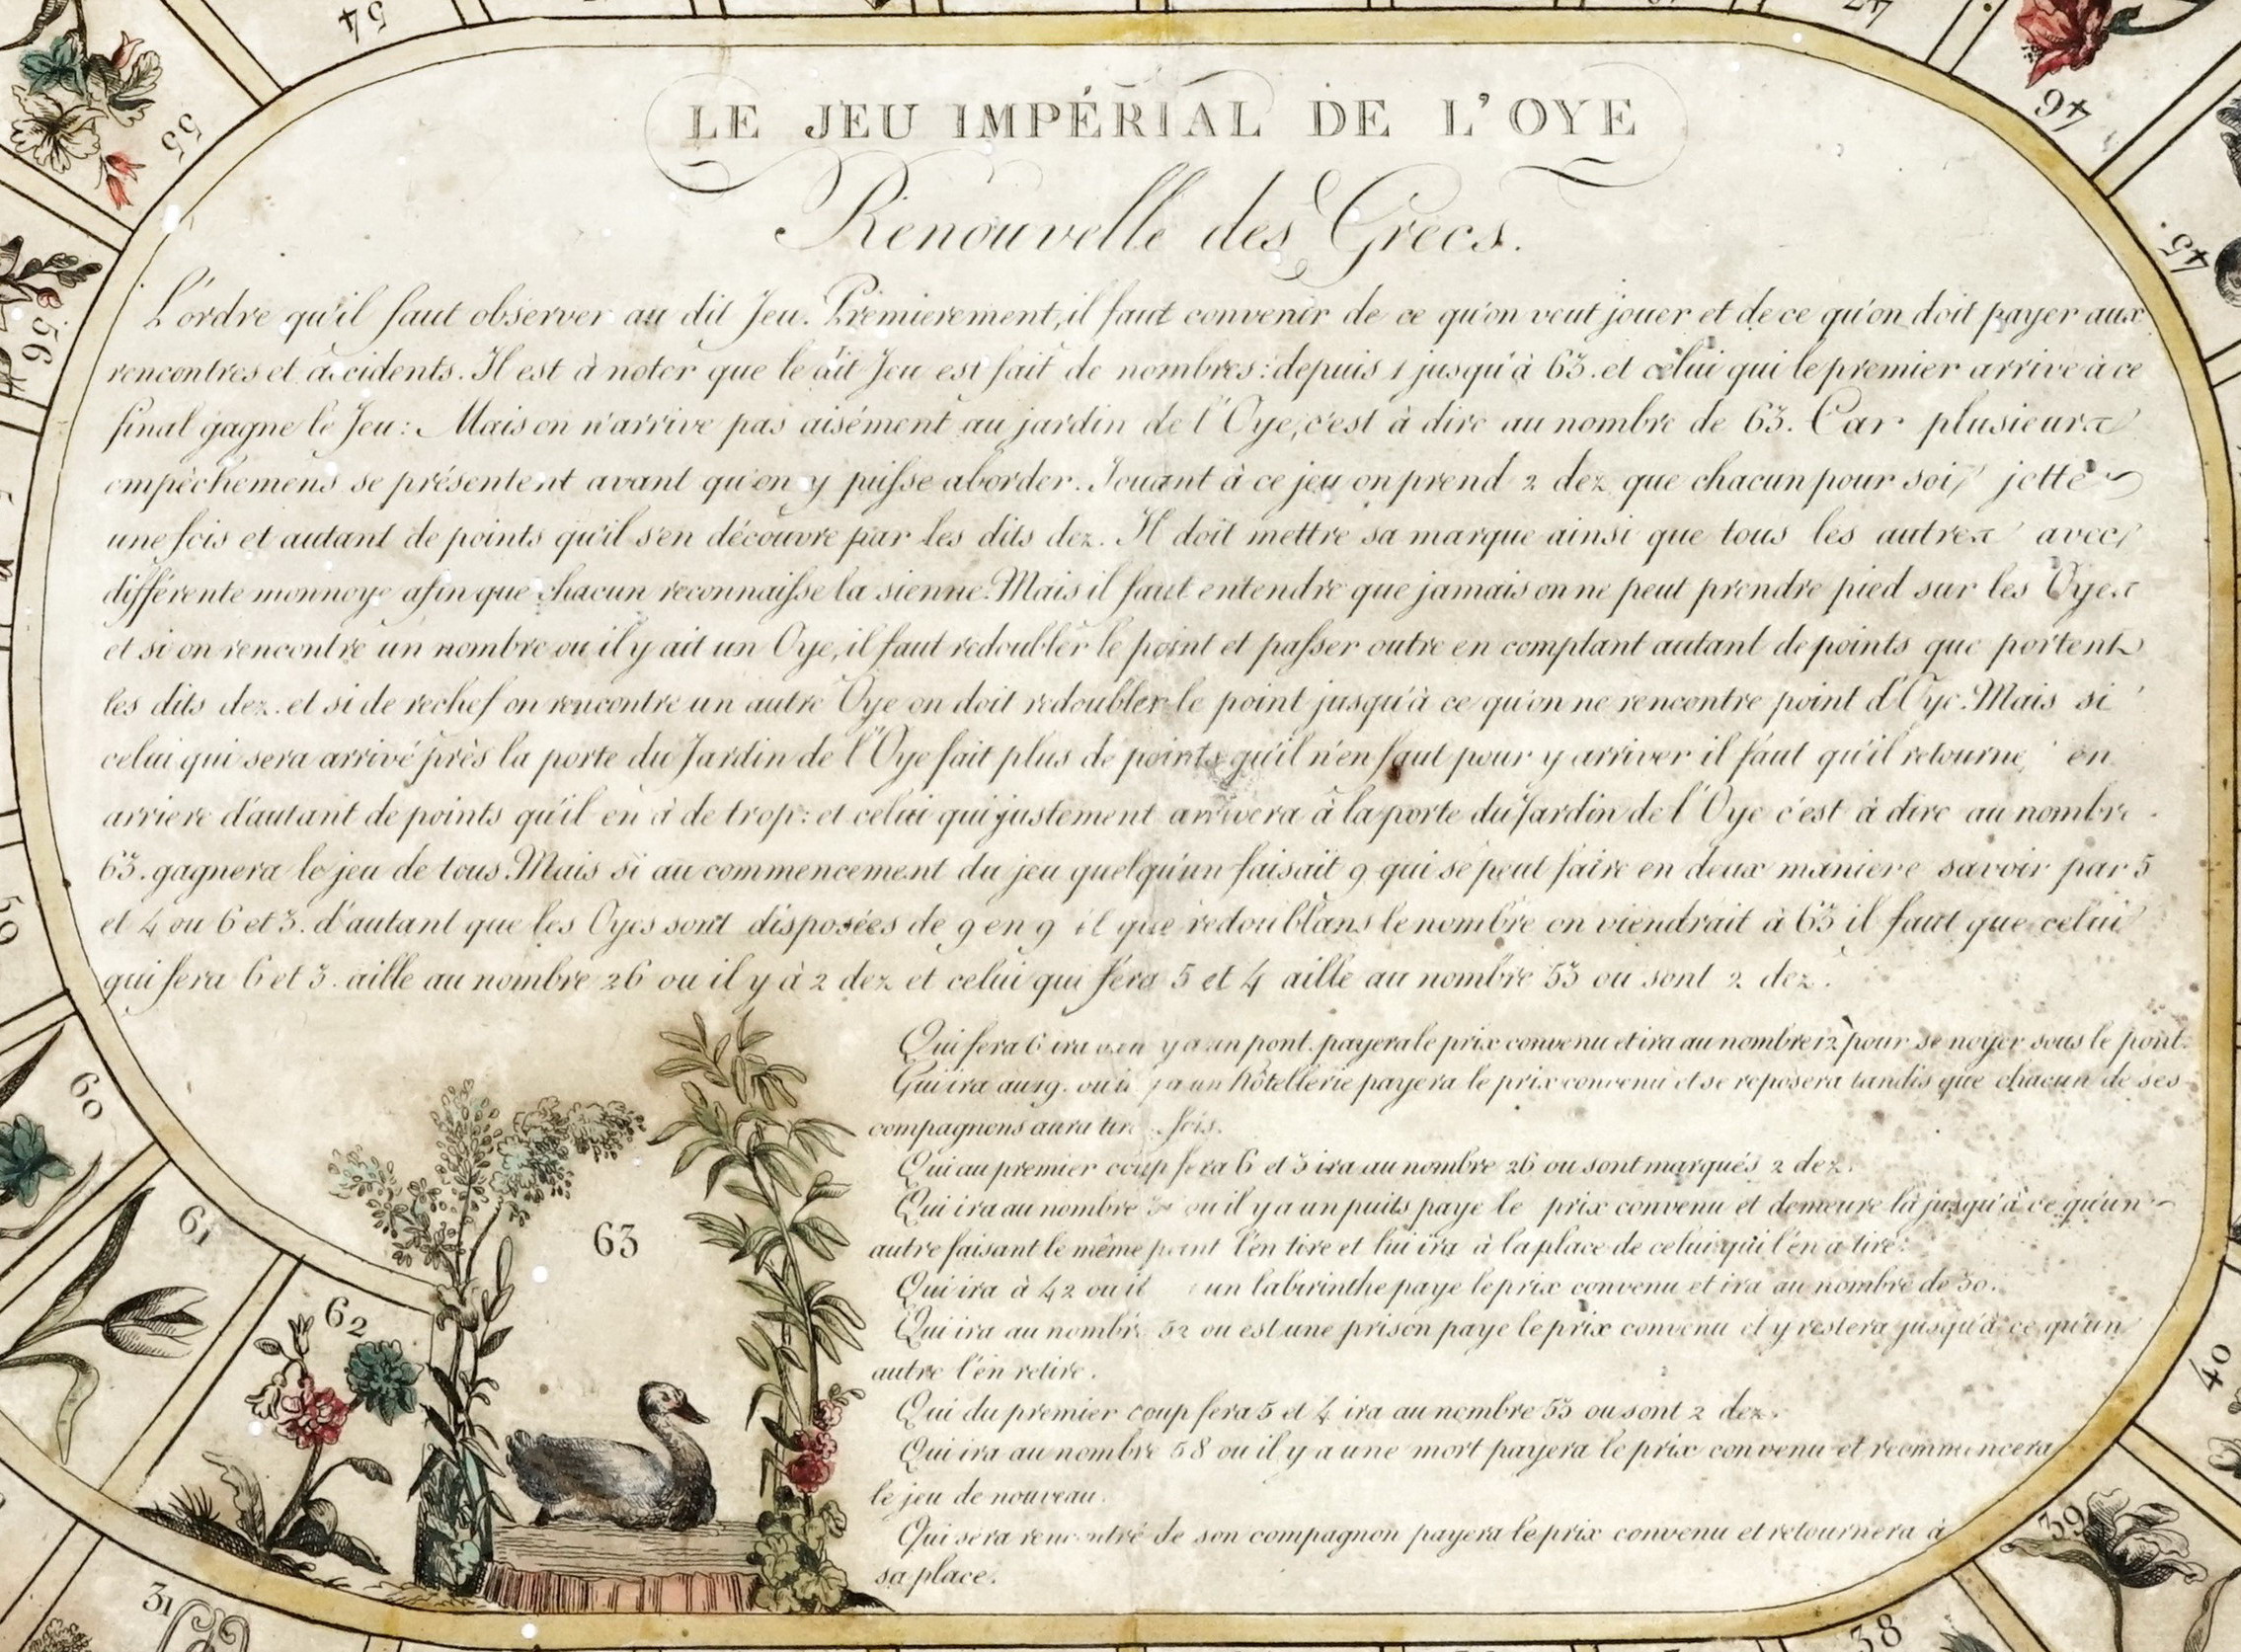 LE JEU IMPÉRIAL DE L'OYE
Renouvellé des Grecs.
L'ordre qu'il faut observer au dit Jeu. Premierement, il faut convenir de ce qu'on veut jouer et de ce qu'on doit payer aux
rencontres et accidents. Il est à noter que le dit Jeu est fait de nombres: depuis 1 jusqu'à 63. et celui qui le premier arrive à ce
final gagne le Jeu: Mais on n'arrive pas aisément au jardin de l'Oye, c'est à dire au nombre de 63. Car plusieurs
empêchemens se présentent avant qu'on y puisse aborder. Jouant à ce jeu on prend 2 dez que chacun pour soi jette
une fois et autant de points qu'il s'en découvre par les dits dez. Il doit mettre sa marque ainsi que tous les autres avec
différente monnoye afin que chacun reconnaisse la sienne. Mais il faut entendre que jamais on ne peut prendre pied sur les Oyes
et si on rencontre un nombre ou il y ait un Oye, il faut redoubler le point et passer outre en comptant autant de points que portent
les dits dez. et si de rechef on rencontre un autre Oye on doit redoubler le point jusqu'à ce qu'on ne rencontre point d'Oye. Mais si
celui qui sera arrivé près la porte du Jardin de l'Oye fait plus de points qu'il n'en faut pour y arriver il faut qu'il retourne en
arriere d'autant de points qu'il en à de trop: et celui qui justement arrivera à la porte du Jardin de l'Oye c'est à dire au nombre
63. gagnera le jeu de tous. Mais si au commencement du jeu quelqu'un faisait 9 qui se peut faire en deux maniere savoir par 5
et 4 ou 6 et 3. d'autant que les Oyes sont disposées de 9 en 9 et que redoublans le nombre on viendrait à 63 il faut que celui
qui fera 6 et 3. aille au nombre 26 ou il y à 2 dez et celui qui fera 5 et 4 aille au nombre 53 ou sont 2 dez.
Qui fera 6 ira y a un pont. payera le prix convenu et ira au nombre 12 pour se noyer sous le pont.
Qui ira au 19. ou il y a un hôtellerie payera le prix convenu et se reposera tandis que chacun de ses
compagnons aura tiré fois.
Qui au premier coup fera 6 et 3 ira au nombre 26 ou sont marqués 2 dez.
Qui ira au nombre ou il y a un puits paye le prix convenu et demeure là jusqu'à ce qu'un
autre faisant le même point l'en tire et lui ira à la place de celui qui l'en a tiré.
Qui ira à 42 ou il un labirinthe paye le prix convenu et ira au nombre de 30.
Qui ira au nombre 52 ou est une prison paye le prix convenu et y restera jusqu'à ce qu'un
autre l'en retire.
Qui du premier coup fera 5 et 4 ira au nombre 53 ou sont 2 dez.
Qui ira au nombre 58 ou il y a une mort payera le prix convenu et recommencera
le jeu de nouveau.
Qui sera rencontré de son compagnon payera le prix convenu et retournera à
sa place.
54
55
56
59
60
61
62
63
31
38
39
40
45.
46
47